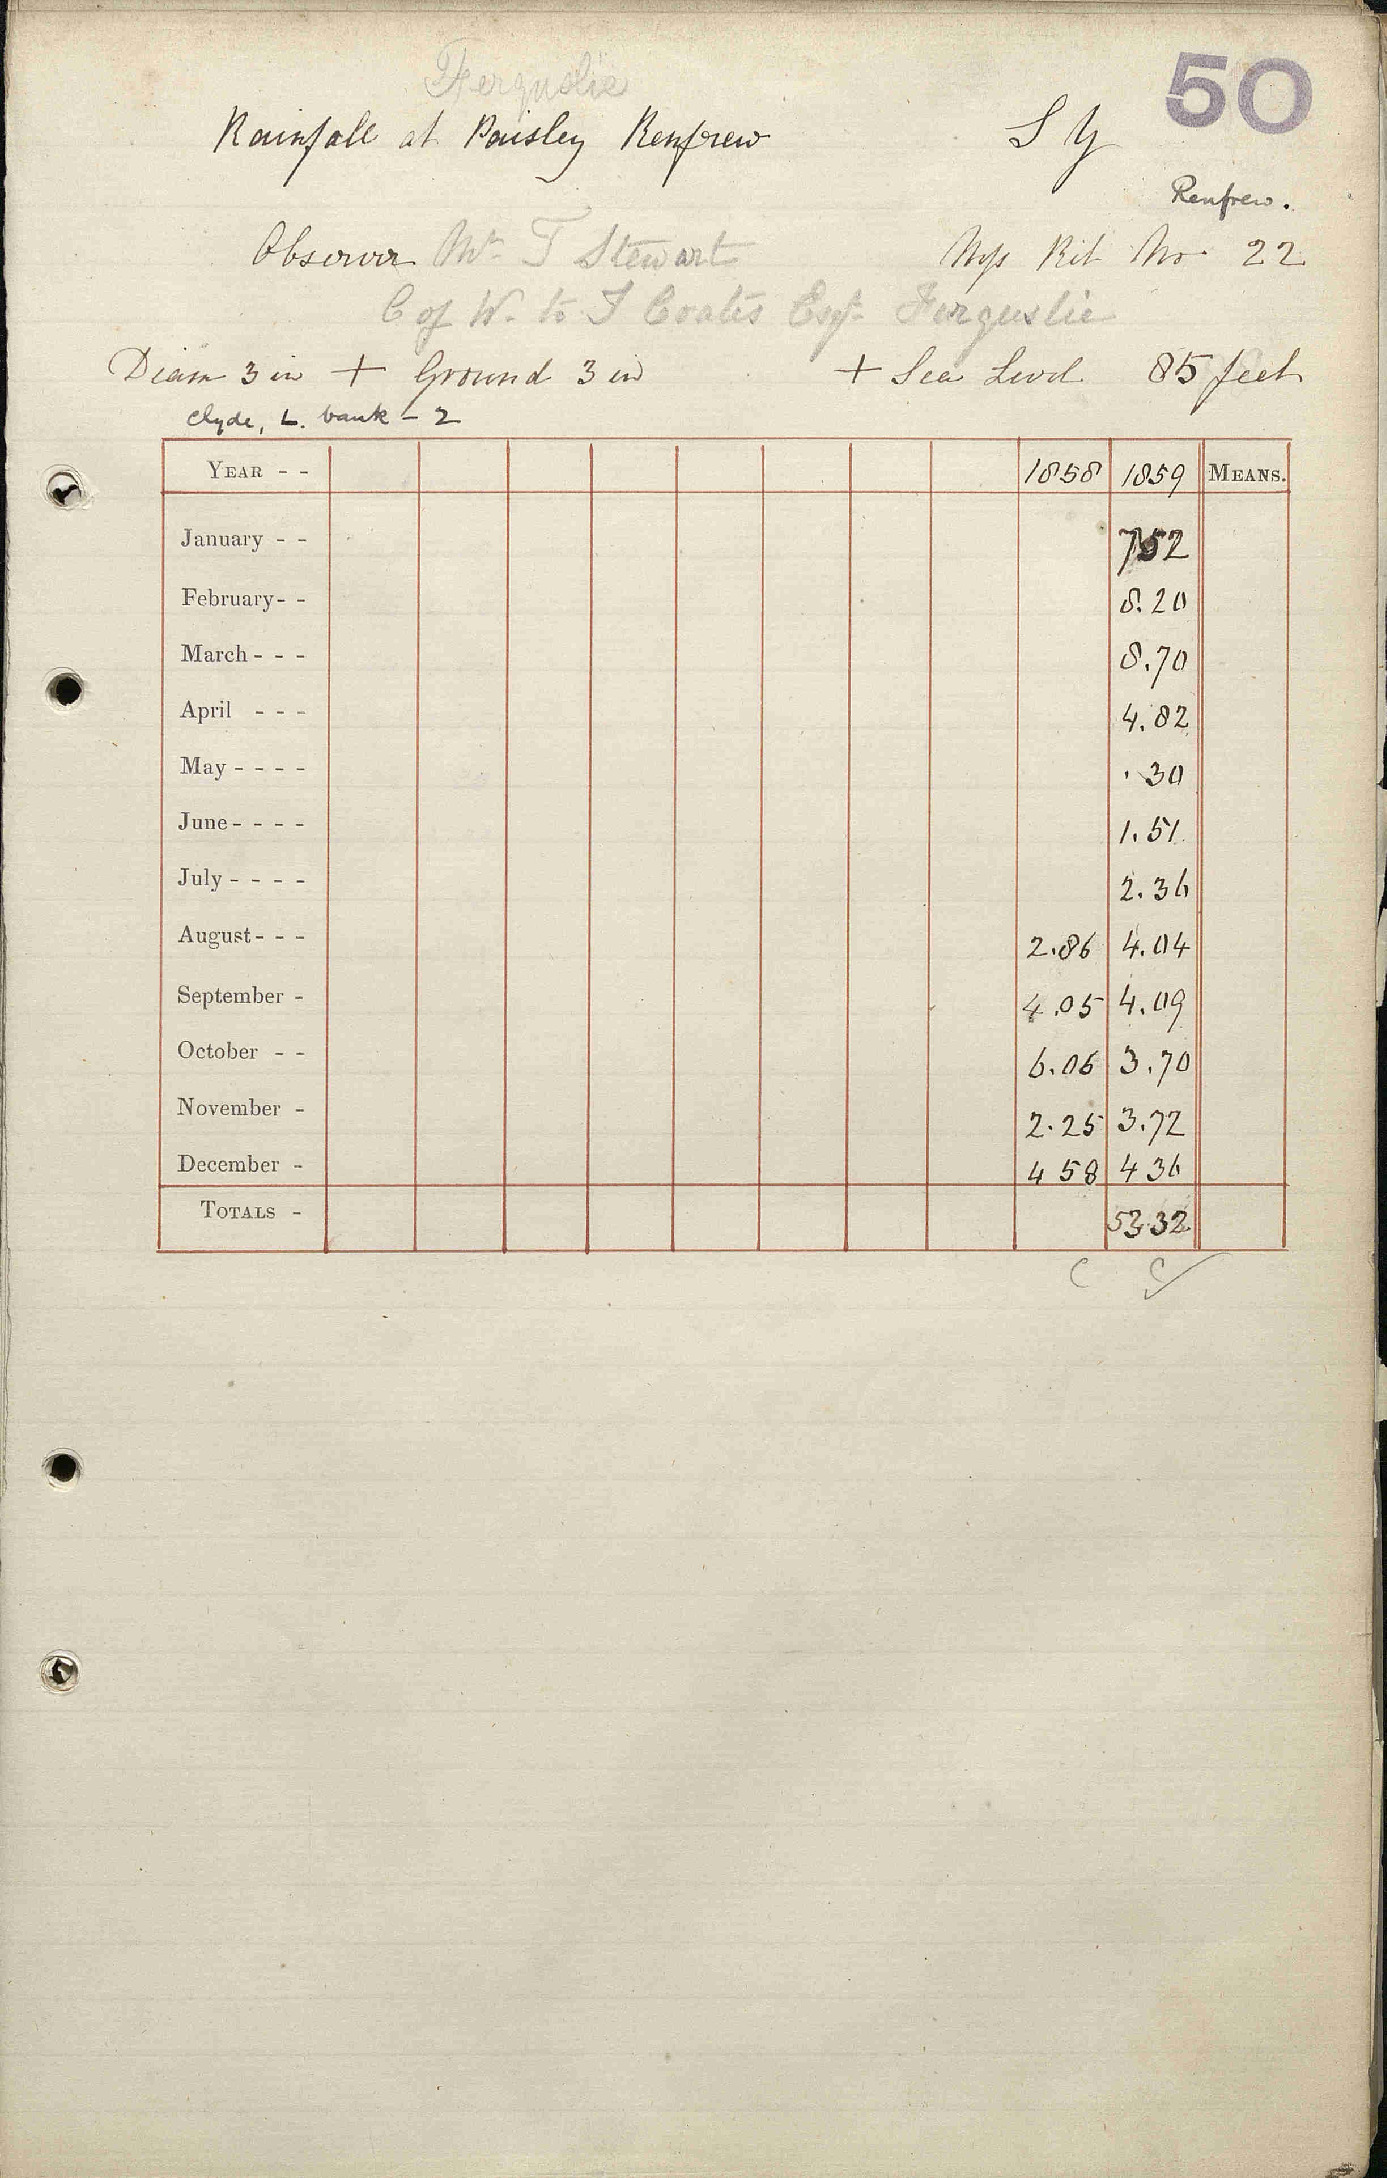 50
Ferguslie
Rainfall at Paisley Renfrew S Y
Renfrew.
Observer Mr T Stewart No 22
C of W. to T Coates Esqr. Ferguslie
Diam 3 in + Ground 3 in + Sea Level 85 feet
Clyde, L. bank - 2
YEAR - - 1858 1859 MEANS.
January - - 7.52
February - - 8.20
March - - - 8.70
April - - - 4.82
May - - - - .30
June - - - - 1.51
July - - - - 2.36
August - - - 2.86 4.04
September - 4.05 4.09
October - - 6.06 3.70
November - 2.25 3.72
December - 4 58 4 36
TOTALS - 53.32
c c